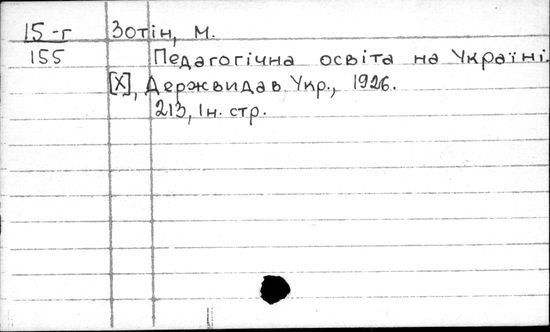 15-г Зотін, М.
155 Педагогічна освіта на Україні.
[Х], Держвидав Укр., 1926.
213, Ін. стр.